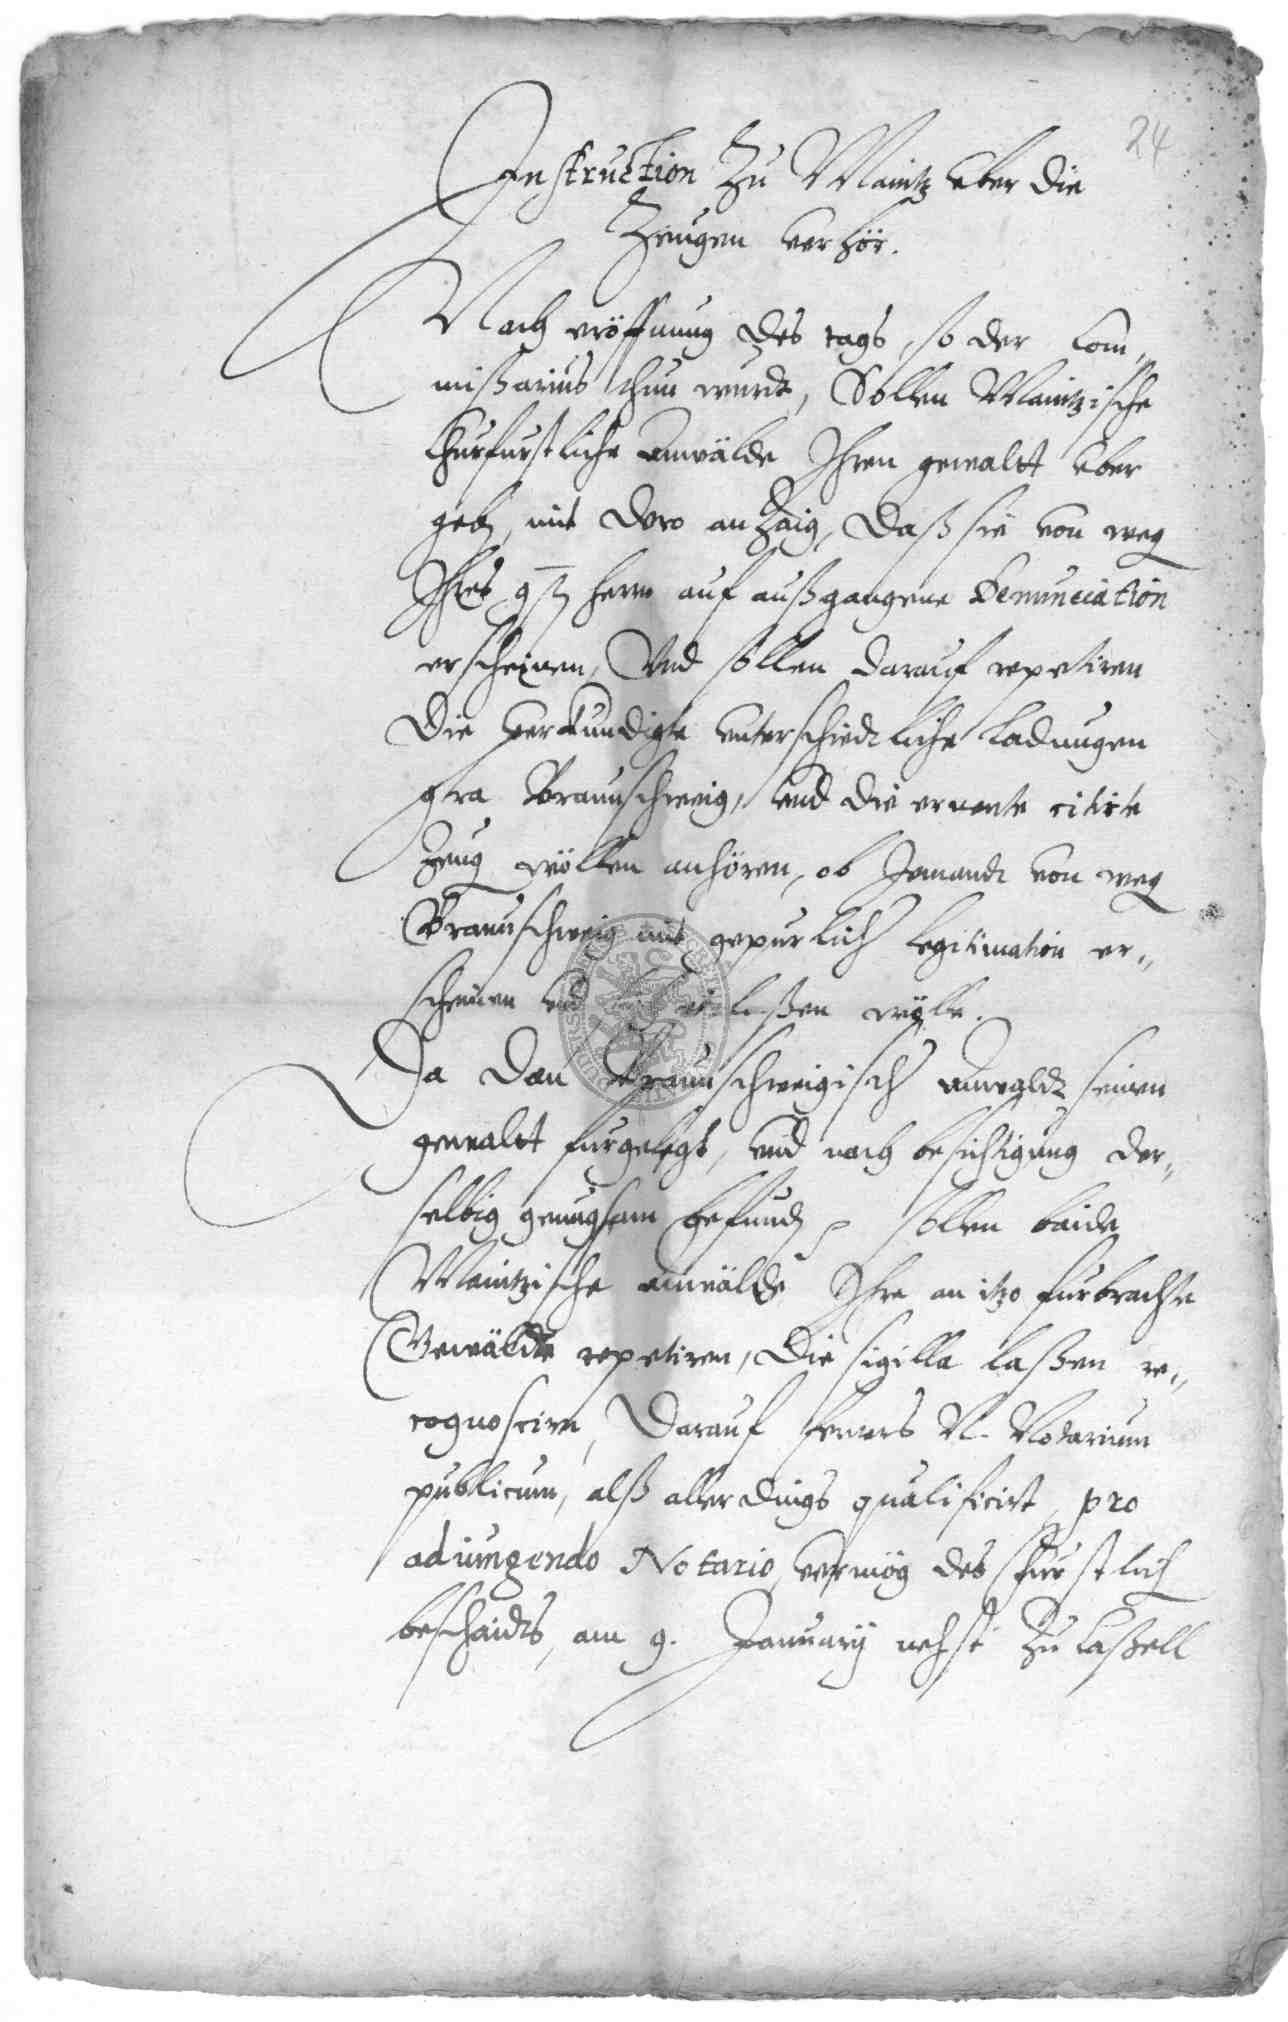 24
Instruction Zu Maintz vber die
Zeugen verhör.
Nach eröffnung des tags, so der Com„
mißarius thun wurdt, Sollen Maintzische
Churfurstliche anwälde Ihren gewaltt vber
geben, mit dero anzaig, daß sie von weg
Ihres gsten herrn auf außgangene Denunciation
erscheinen, Vnd sollen darauf repetiren
die verkundigte vnterschiedtliche ladungen
contra Braunschweig, vnd die ernente citirte
Zeug wöllen anhören, ob Jemandt von weg
Braunschweig mit gepurlich legitimation er„
scheinen vnd laßen wölle.
Da dan Braunschweigisch anwaldt seinen
gewaltt furgelegt, vnd nach besichtigung der„
selbig genugsam befunden, sollen baide
Maintzische anwälde Ihre an itzo furbrachte
Gewälde repetiren, die sigilla laßen re„
cognosciren, Darauf ferners N. Notarium
publicum, alß allerdings qualificirt, pro
adiungendo Notario, vermög des Furstlich
beschaidts, am 9. January nehst zu Caßell